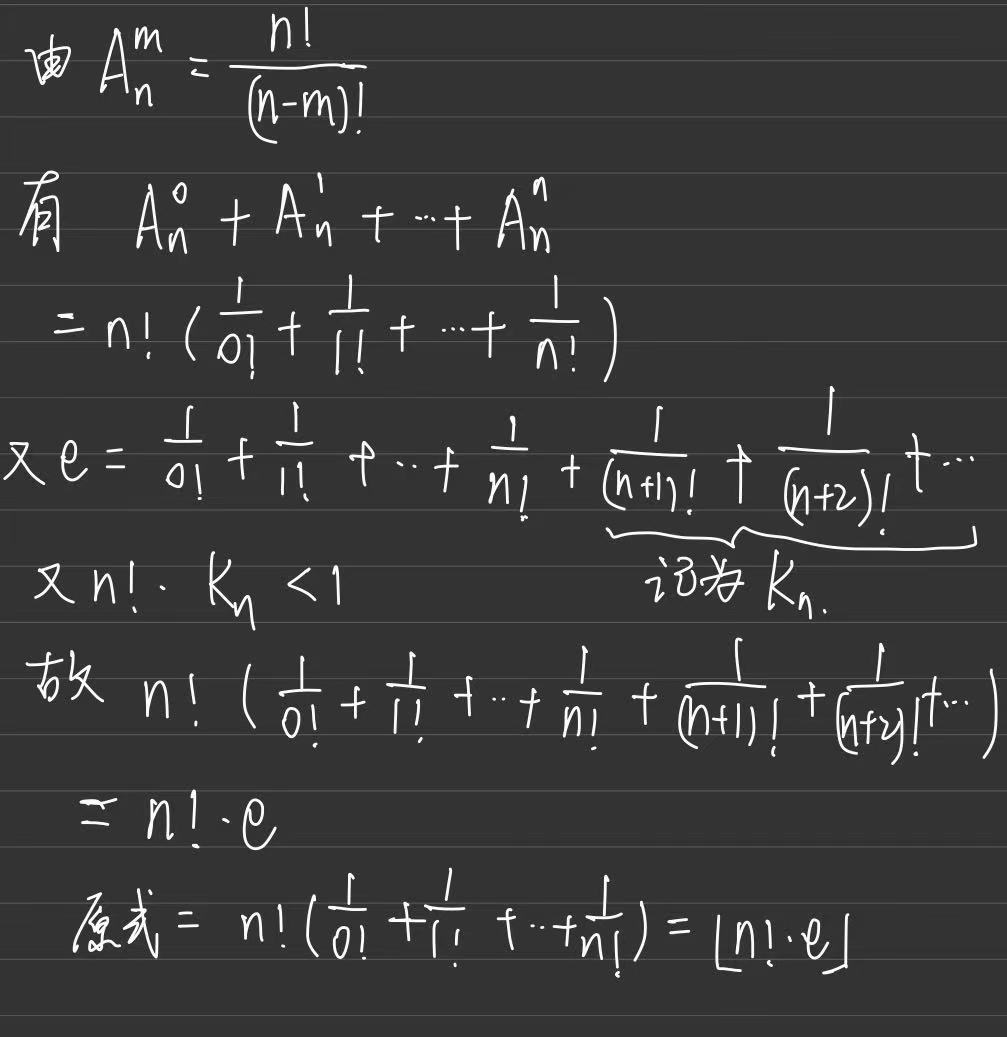 由 A_n^m = \frac{n!}{(n-m)!}
有 A_n^0 + A_n^1 + ⋯ + A_n^n
= n! ( \frac{1}{0!} + \frac{1}{1!} + ⋯ + \frac{1}{n!} )
又 e = \frac{1}{0!} + \frac{1}{1!} + ⋯ + \frac{1}{n!} + \frac{1}{(n+1)!} + \frac{1}{(n+2)!} + ⋯
又 n! · K_n < 1 记为 K_n.
故 n! ( \frac{1}{0!} + \frac{1}{1!} + ⋯ + \frac{1}{n!} + \frac{1}{(n+1)!} + \frac{1}{(n+2)!} + ⋯ )
= n! · e
原式 = n! ( \frac{1}{0!} + \frac{1}{1!} + ⋯ + \frac{1}{n!} ) = ⌊n! · e⌋